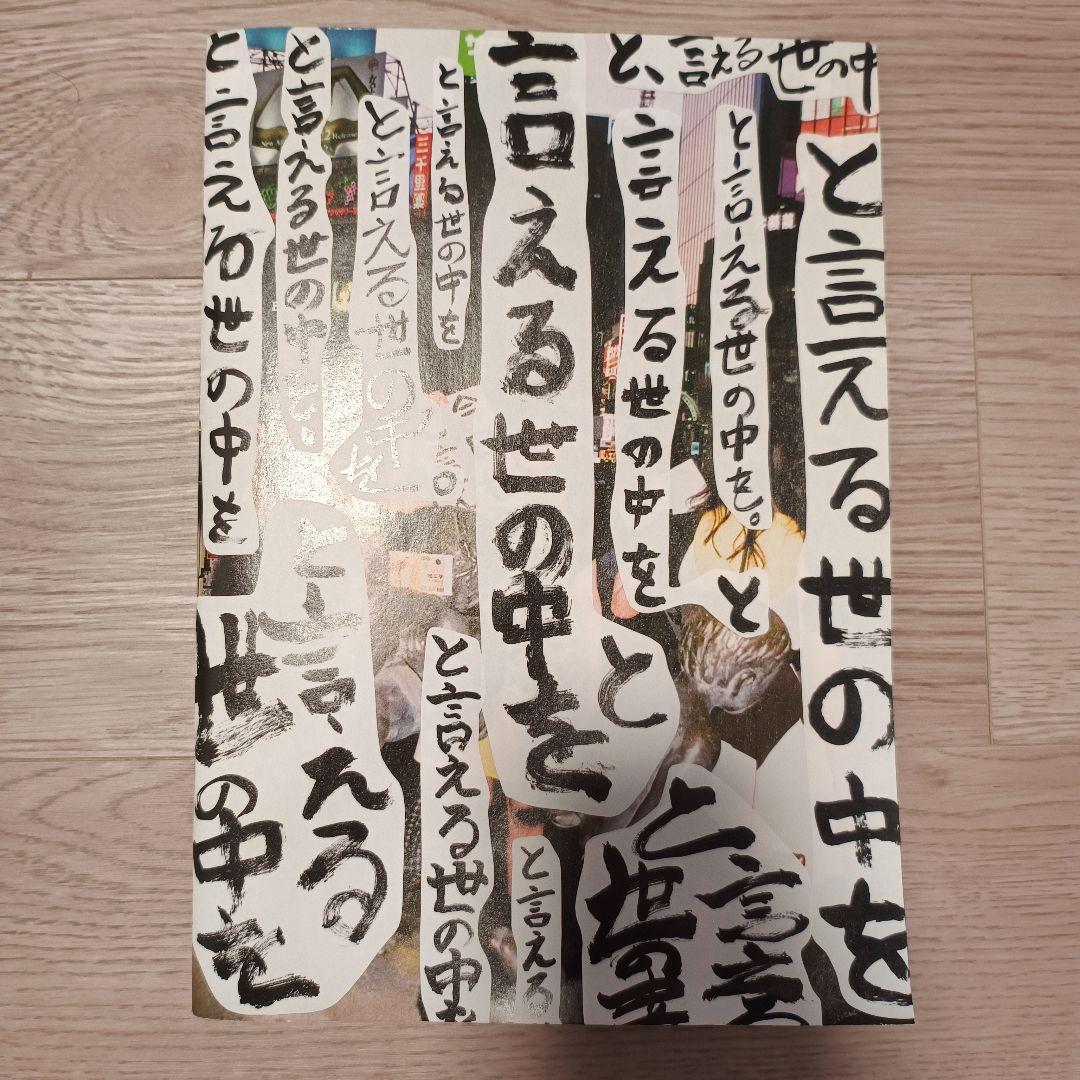 と、言える世の中
と言える世の中を
と言える世の中を。
と
と、言える世の中を
言える世の中を
と
と言える世の中を
と言える世の中を
と言える世の中を
と言える世の中を
三千里薬
と言える
世の中を
と言える世の中を
と言える
と言える
世の中